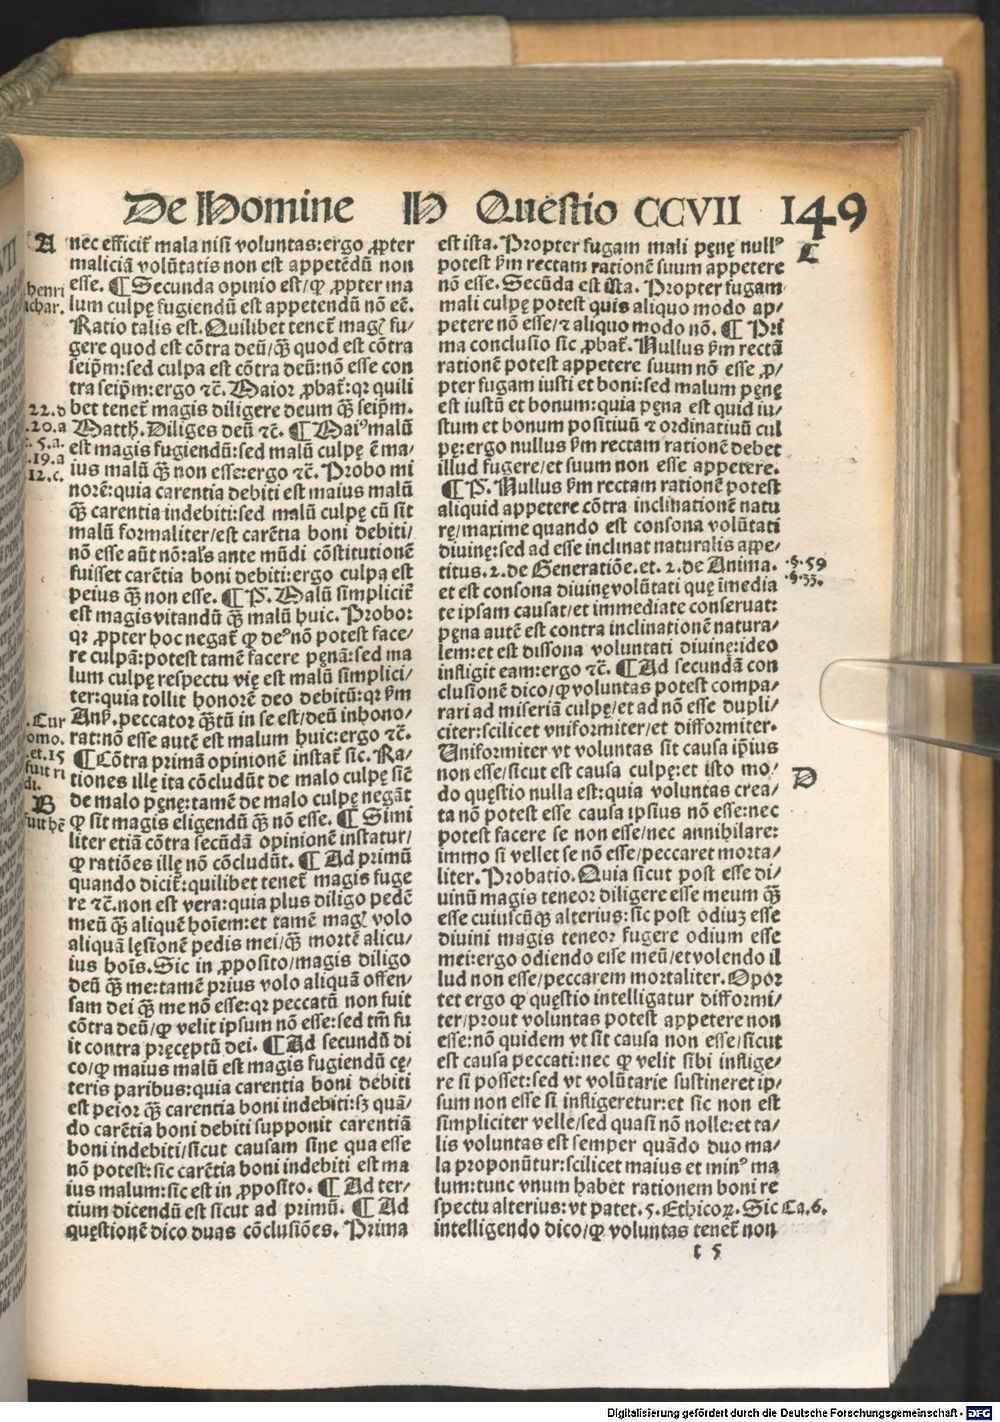 De Homine H Questio CCVII 149
A
nec efficit̃ mala nisi voluntas:ergo ꝓpter
maliciã volũtatis non est appetẽdũ non
esse. ¶ Secunda opinio est/ꝙ ꝓpter ma
henri
lum culpę fugiendũ est appetendũ nõ eẽ.
ichar.
Ratio talis est. Quilibet tenet̃ magꝭ fu/
gere quod est cõtra deũ/ꝙ̃ quod est cõtra
seip̃m:sed culpa est cõtra deũ:nõ esse con
tra seip̃m:ergo ⁊c̃. Maior ꝓbat̃:qꝛ quili
22.d
bet tenet̃ magis diligere deum ꝙ̃ seip̃m.
.20.a
Matth. Diliges deũ ⁊c̃. ¶ Maiꝰ malũ
. 5.a.
est magis fugiendũ:sed malũ culpę ẽ ma/
.19.a
ius malũ ꝙ̃ non esse:ergo ⁊c̃. Probo mi
12.c.
norẽ:quia carentia debiti est maius malũ
ꝙ̃ carentia indebiti:sed malũ culpę cũ sit
malũ formaliter/est carẽtia boni debiti/
nõ esse aũt nõ:als̃ ante mũdi cõstitutionẽ
fuisset carẽtia boni debiti:ergo culpa est
peius ꝙ̃ non esse. ¶ P̃. Malũ simplicit̃
est magis vitandũ ꝙ̃ malũ huic. Probo:
qꝛ ꝓpter hoc negat̃ ꝙ deꝰ nõ potest face/
re culpã:potest tamẽ facere pęnã:sed ma
lum culpę respectu vię est malũ simplici/
ter:quia tollit honorẽ deo debitũ:qꝛ ẜm
.Cur
Anẜ. peccator ꝙ̃tũ in se est/deũ inhono/
omo.
rat:nõ esse autẽ est malum huic:ergo ⁊c̃.
.et.15
¶ Cõtra primã opinionẽ instat̃ sic. Ra/
fuit ri
tiones illę ita cõcludũt de malo culpę sic̃
di.
B
de malo pęnę:tamẽ de malo culpę negãt
ꝙ sit magis eligendũ ꝙ̃ nõ esse. ¶ Simi
fuit hẽ
liter etiã cõtra secũdã opinionẽ instatur/
ꝙ ratiões illę nõ cõcludũt. ¶ Ad primũ
quando dicit̃:quilibet tenet̃ magis fuge
re ⁊c̃.non est vera:quia plus diligo pedẽ
meũ ꝙ̃ aliquẽ hoĩem:et tamẽ magꝭ volo
aliquã lęsionẽ pedis mei/ꝙ̃ mortẽ alicu/
ius hoĩs. Sic in ꝓposito/magis diligo
deũ ꝙ̃ me:tamẽ prius volo aliquã offen/
sam dei ꝙ̃ me nõ esse:qꝛ peccatũ non fuit
cõtra deũ/ꝙ velit ipsum nõ esse:sed tm̃ fu
it contra pręceptũ dei. ¶ Ad secundũ di
co/ꝙ maius malũ est magis fugiendũ cę/
teris paribus:quia carentia boni debiti
est peior ꝙ̃ carentia boni indebiti:sꝫ quã/
do carẽtia boni debiti supponit carentiã
boni indebiti/sicut causam sine qua esse
nõ potest:sic carẽtia boni indebiti est ma
ius malum:sic est in ꝓposito. ¶ Ad ter/
tium dicendũ est sicut ad primũ. ¶ Ad
quęstionẽ dico duas cõclusiões. Prima
est ista. Propter fugam mali pęnę nullꝰ
C
potest ẜm rectam rationẽ suum appetere
nõ esse. Secũda est ista. Propter fugam
mali culpę potest quis aliquo modo ap/
petere nõ esse/⁊ aliquo modo nõ. ¶ Pri
ma conclusio sic ꝓbat̃. Nullus ẜm rectã
rationẽ potest appetere suum nõ esse ꝓ/
pter fugam iusti et boni:sed malum pęnę
est iustũ et bonum:quia pęna est quid iu/
stum et bonum positiuũ ⁊ ordinatiuũ cul
pę:ergo nullus ẜm rectam rationẽ debet
illud fugere/et suum non esse appetere.
¶ P̃. Nullus ẜm rectam rationẽ potest
aliquid appetere cõtra inclinationẽ natu
rę/maxime quando est consona volũtati
diuinę:sed ad esse inclinat naturalis appe/
titus.2.de Generatiõe.et.2.de Anima.
.§.59
.§.33.
et est consona diuinę volũtati quę im̃edia
te ipsam causat/et immediate conseruat:
pęna autẽ est contra inclinationẽ natura/
lem:et est dissona voluntati diuinę:ideo
infligit eam:ergo ⁊c̃. ¶ Ad secundã con
clusionẽ dico/ꝙ voluntas potest compa/
rari ad miseriã culpę/et ad nõ esse dupli/
citer:scilicet vniformiter/et difformiter.
Uniformiter vt voluntas sit causa ip̃ius
non esse/sicut est causa culpę:et isto mo/
D
do quęstio nulla est:quia voluntas crea/
ta nõ potest esse causa ipsius nõ esse:nec
potest facere se non esse/nec annihilare:
immo si vellet se nõ esse/peccaret morta/
liter. Probatio. Quia sicut post esse di/
uinũ magis teneor diligere esse meum ꝙ̃
esse cuiuscũqꝫ alterius:sic post odiuꝫ esse
diuini magis teneor fugere odium esse
mei:ergo odiendo esse meũ/et volendo il
lud non esse/peccarem mortaliter. Opor
tet ergo ꝙ quęstio intelligatur difformi/
ter/prout voluntas potest appetere non
esse:nõ quidem vt sit causa non esse/sicut
est causa peccati:nec ꝙ velit sibi inflige/
re si posset:sed vt volũtarie sustineret ip/
sum non esse si infligeretur:et sic non est
simpliciter velle/sed quasi nõ nolle:et ta/
lis voluntas est semper quãdo duo ma/
la proponũtur:scilicet maius et minꝰ ma
lum:tunc vnum habet rationem boni re
spectu alterius:vt patet.5.Ethicoꝝ. Sic
Ca.6.
intelligendo dico/ꝙ voluntas tenet̃ non
t 5
Digitalisierung gefördert durch die Deutsche Forschungsgemeinschaft - DFG